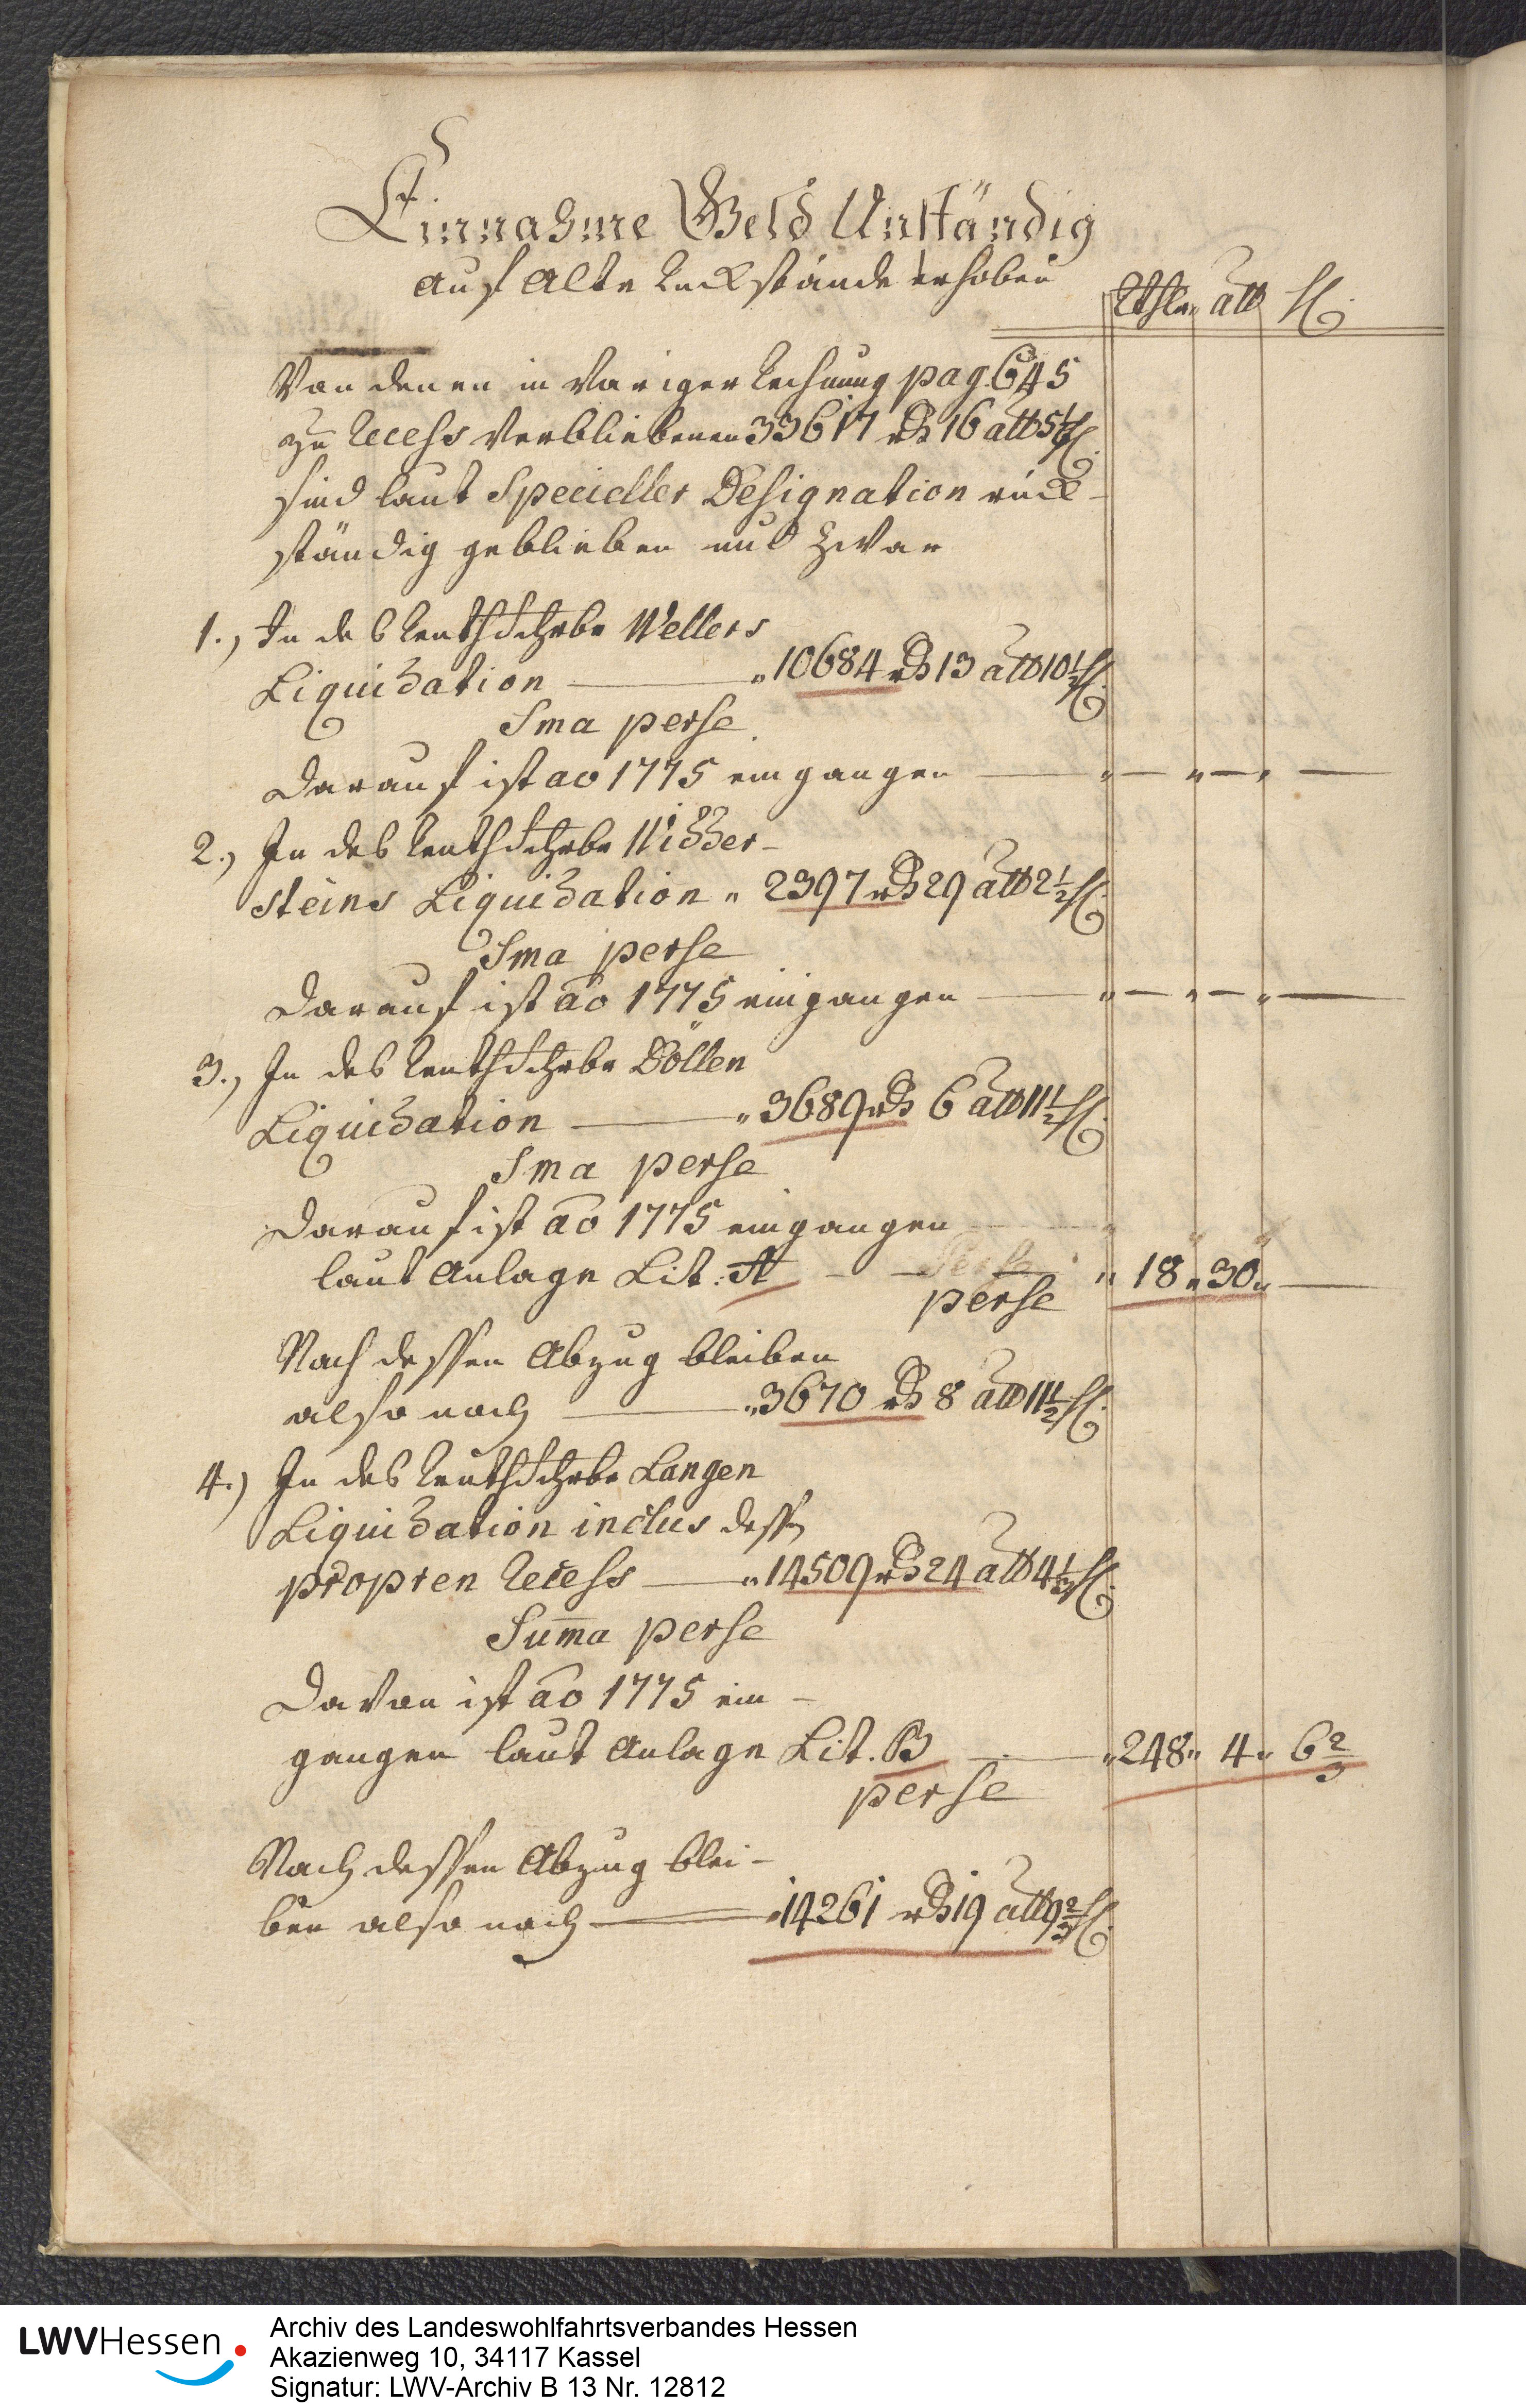 Einnahme Geld Unständig
auf Alte Rückstände erhoben
Rthlr alb hl.
Von denen in voriger Rechnung pag. 645
zu Recess verbliebenen 33617 rthl 16 alb 5 hl.
sind laut Specieller Designation rück-
ständig geblieben und zwar
1., In des Rentschrbr Wellers
Liquidation — " 10684 rthl 13 alb 10½ hl.
Sma perse
Darauf ist ao 1775 eingangen — " — " — " —
2., In des Rentschrbr Widder-
steins Liquidation " 2397 rthl 29 alb 2½ hl.
Sma perse
Darauf ist ao 1775 eingangen — " — " — " —
3., In des Rentschrbr Döllen
Liquidation — " 3689 rthl 6 alb 11½ hl.
Sma perse
Darauf ist ao 1775 eingangen
laut Anlage Lit. A — " 18 " 30 " —
perse
Nach dessen Abzug bleiben
also noch — " 3670 rthl 8 alb 11½ hl.
4.) In des Rentschrbr Langen
Liquidation inclus dessen
propren Recess — " 14509 rthl 24 alb 4⅓ hl.
Summa perse
Davon ist ao 1775 ein-
gangen laut Anlage Lit. B — " 248 " 4 " 6⅔
perse
Nach dessen Abzug blei-
ben also noch — " 14261 rthl 19 alb 9⅔ hl.
LWVHessen
Archiv des Landeswohlfahrtsverbandes Hessen
Akazienweg 10, 34117 Kassel
Signatur: LWV-Archiv B 13 Nr. 12812